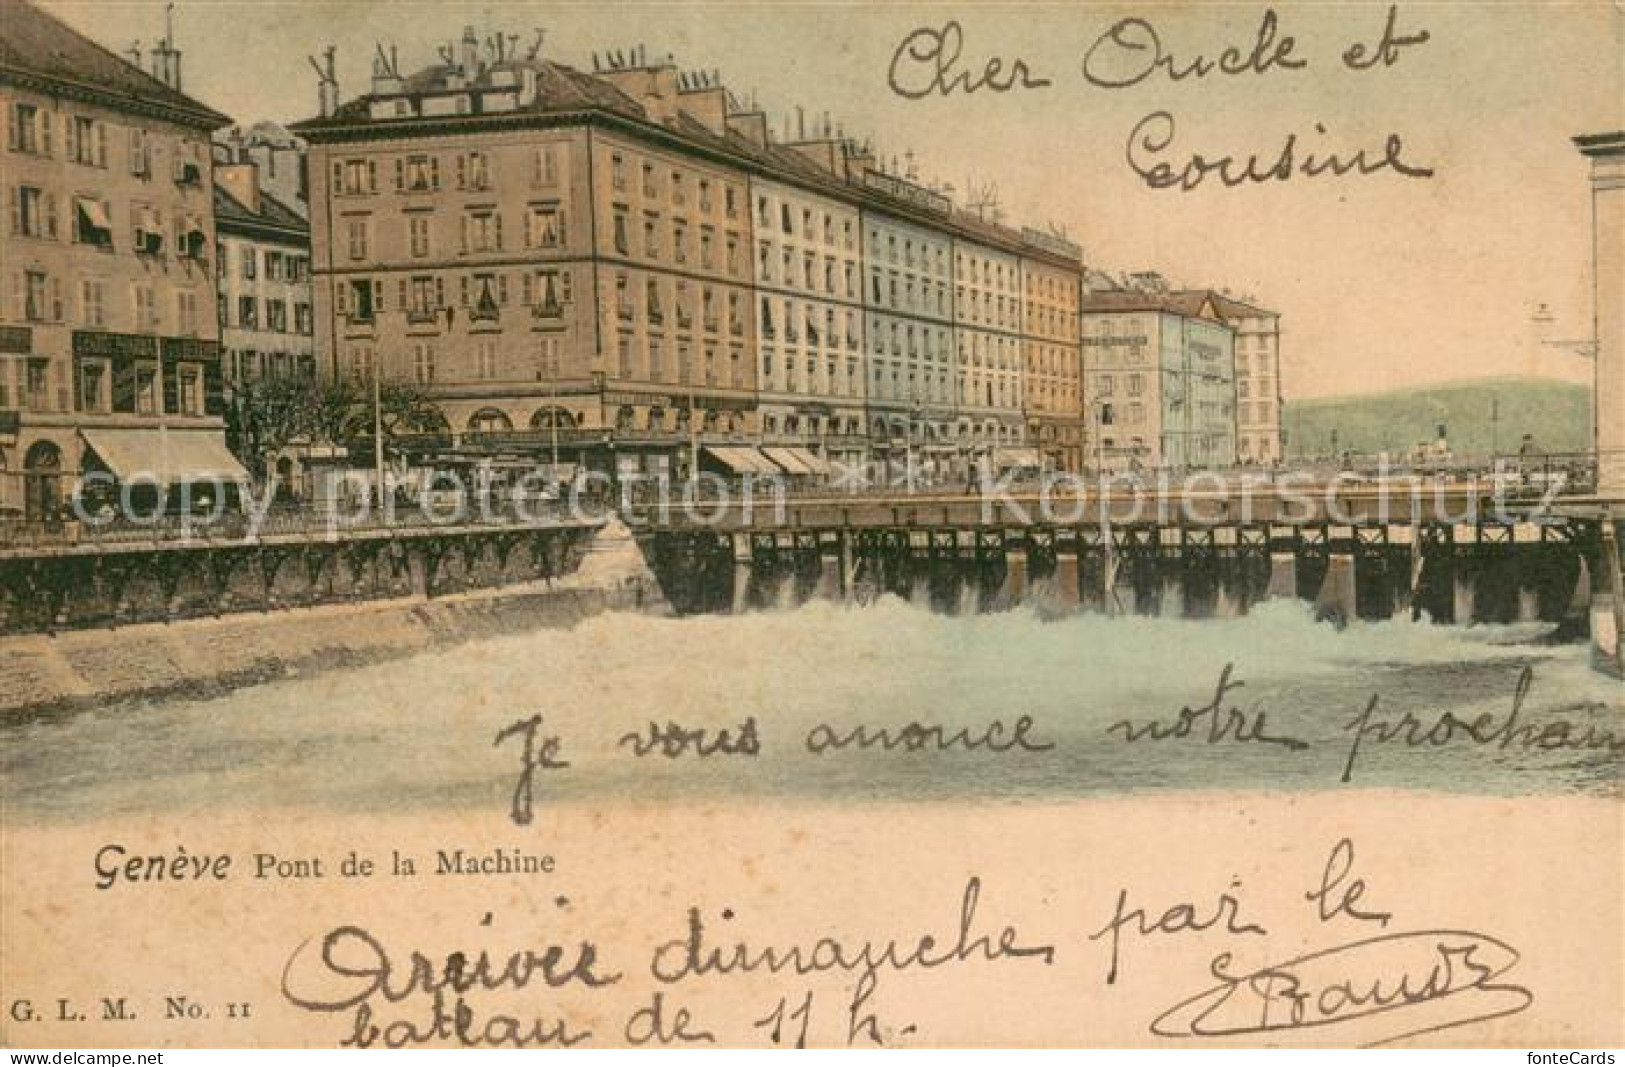 Cher Oncle et
Cousine
copy protection ** Kopierschutz
Je vous anonce notre prochain
Genève Pont de la Machine
Arrivée dimanche par le
bateau de 11 h.
G. L. M. No. 11
www.fonte-cards.com
fonteCards